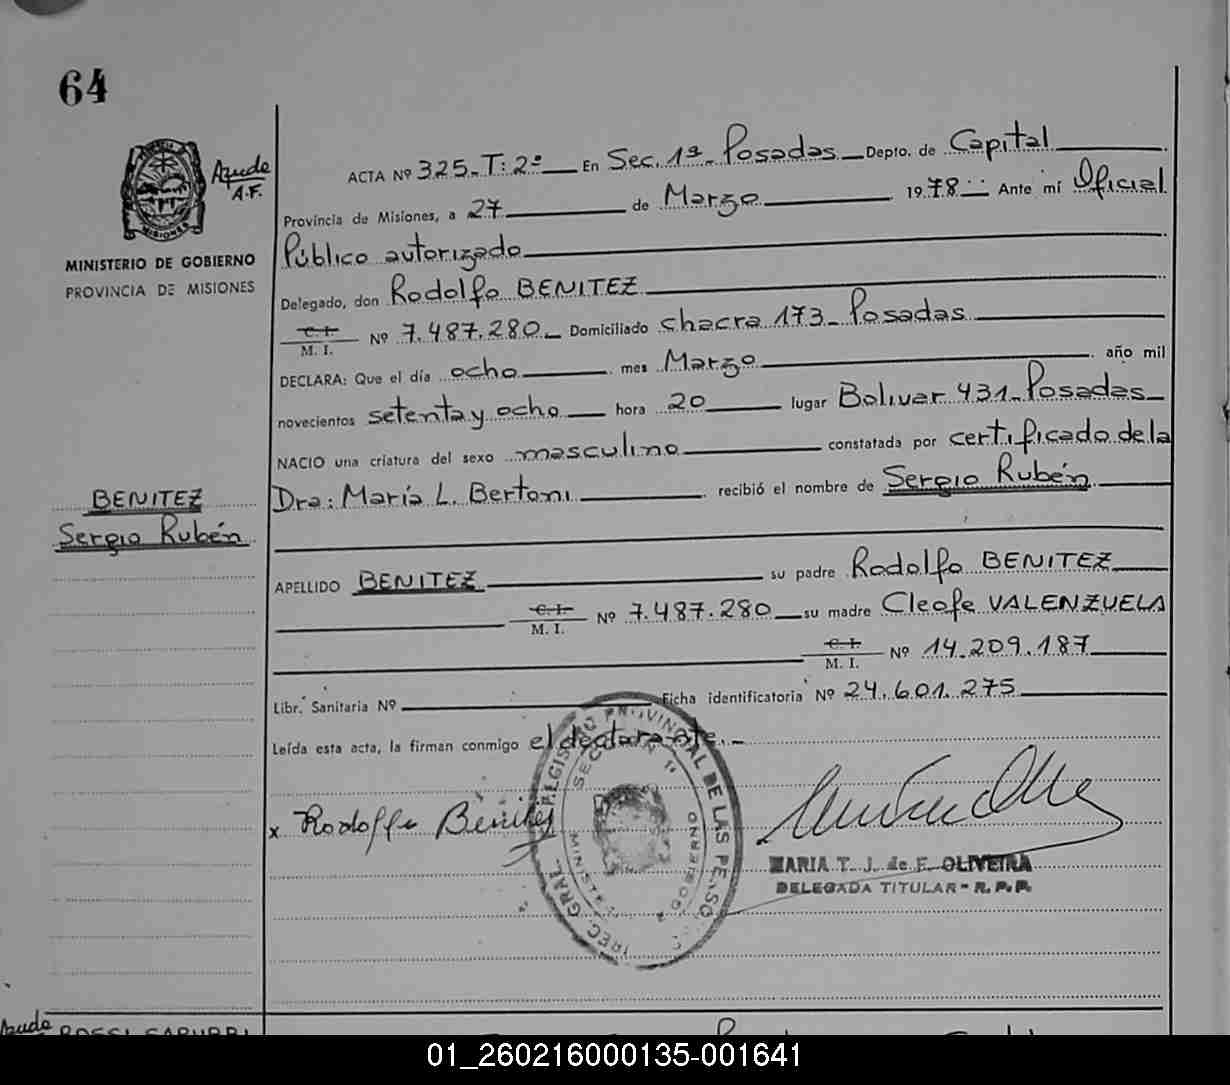 64
Ayude
A.F.
MINISTERIO DE GOBIERNO
PROVINCIA DE MISIONES
BENITEZ
Sergio Rubén
ACTA Nº 325-T: 2º En Sec. 1ª- Posadas Depto. de Capital
Provincia de Misiones, a 27 de Marzo 1978 Ante mí Oficial
Público autorizado
Delegado, don Rodolfo BENITEZ
C. I.
M. I. Nº 7.487.280 Domiciliado chacra 173- Posadas
DECLARA: Que el día ocho mes Marzo año mil
novecientos setenta y ocho hora 20 lugar Bolivar 431- Posadas
NACIO una criatura del sexo masculino constatada por certificado de la
Dra: María L. Bertoni recibió el nombre de Sergio Rubén
APELLIDO BENITEZ su padre Rodolfo BENITEZ
C. I.
M. I. Nº 7.487.280 su madre Cleofe VALENZUELA
C. I.
M. I. Nº 14.209.187
Libr. Sanitaria Nº Ficha identificatoria Nº 24.601.275
Leída esta acta, la firman conmigo el declarante.-
x Rodolfo Benitez
MARIA T. J. de F. OLIVEIRA
DELEGADA TITULAR - R.P.P.
01_260216000135-001641